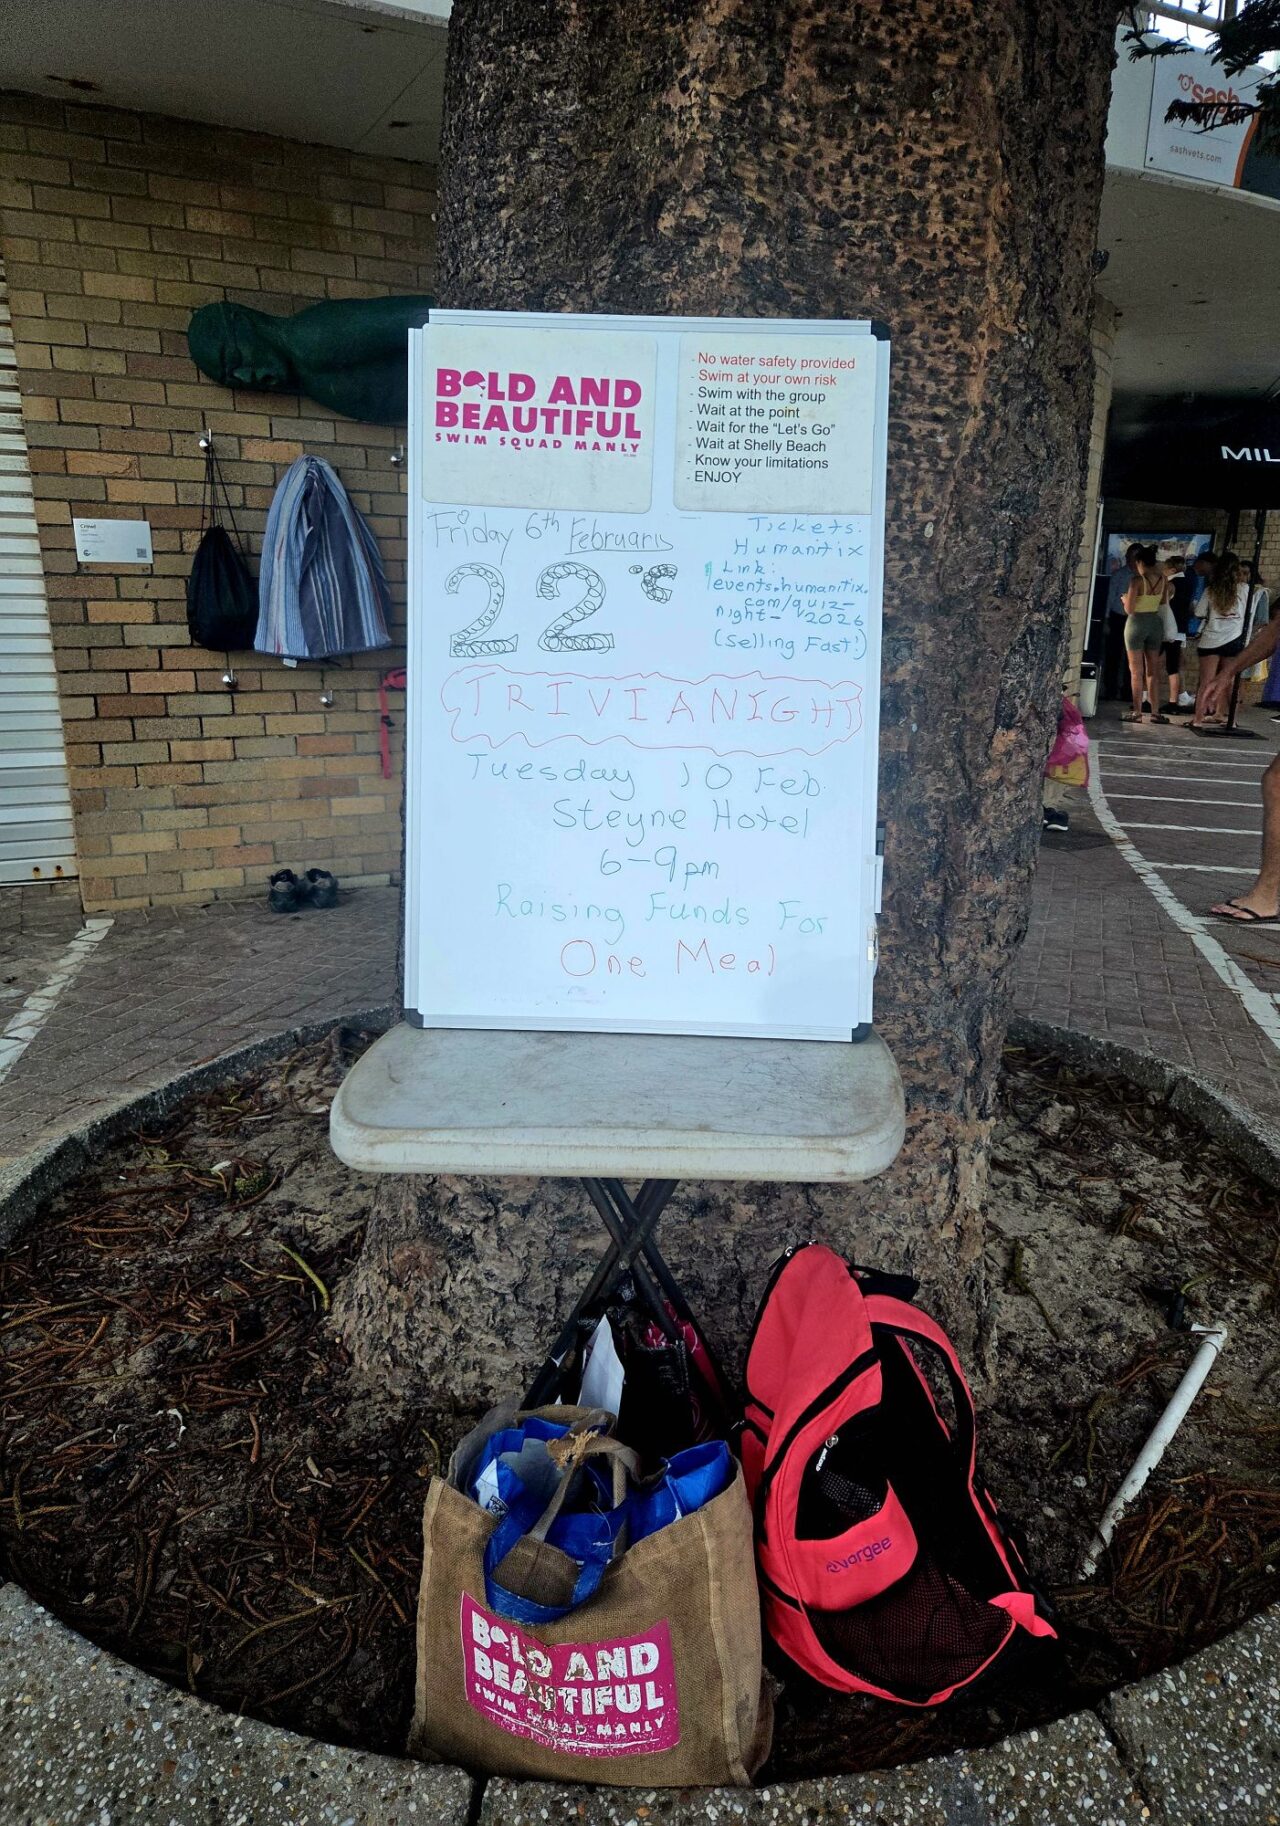 BOLD AND
BEAUTIFUL
SWIM SQUAD MANLY
- No water safety provided
- Swim at your own risk
- Swim with the group
- Wait at the point
- Wait for the "Let's Go"
- Wait at Shelly Beach
- Know your limitations
- ENJOY
Friday 6th February
22°C
Tickets:
Humanitix
Link:
events.humanitix.
com/quiz-
night-2026
(Selling Fast!)
TRIVIA NIGHT
Tuesday 10 Feb.
Steyne Hotel
6-9pm
Raising Funds For
One Meal
sash
sashvets.com
MIL
Crawl
vorgee
BOLD AND
BEAUTIFUL
SWIM SQUAD MANLY